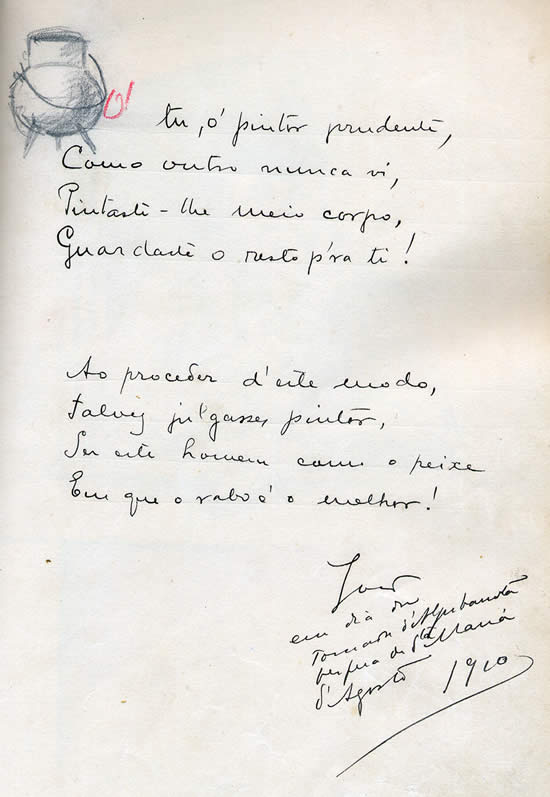 O' tu, ó pintor prudente,
Como outro nunca vi,
Pintaste-lhe meio corpo,
Guardaste o resto p'ra ti!
Ao proceder d'este modo,
Talvez julgasses, pintor,
Ser este homem como o peixe
Em que o rabo é o melhor!
em dia da
Tomada d'Aljubarrota
vespera de Sta Maria
d'Agosto 1910